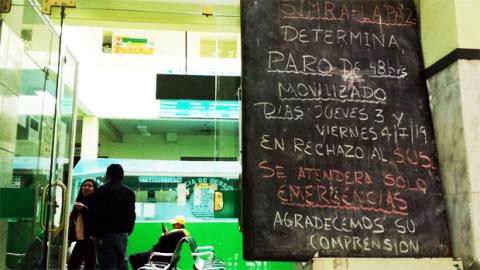 SIMRA-LAPAZ
DETERMINA,
PARO DE 48hrs
MOVILIZADO
DIAS JUEVES 3 Y
VIERNES 4/I/19
EN RECHAZO AL SUS
SE ATENDERA SOLO
EMERGENCIAS
AGRADECEMOS SU
COMPRENSION